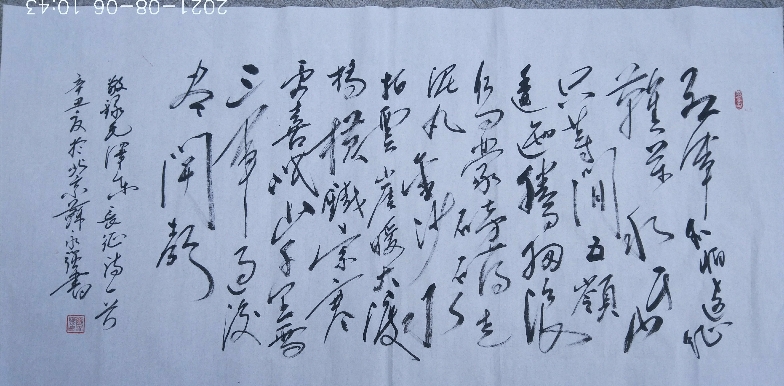 2021-08-06 10:43
红军不怕远征
難万水千山
只等闲五嶺
逶迤腾细浪
乌蒙磅礴走
泥丸金沙水
拍雲崖暖大渡
橋横鐵索寒
更喜岷山千里雪
三军过后
尽開颜
敬録毛泽东长征诗一首
辛丑夏於北京薛永书